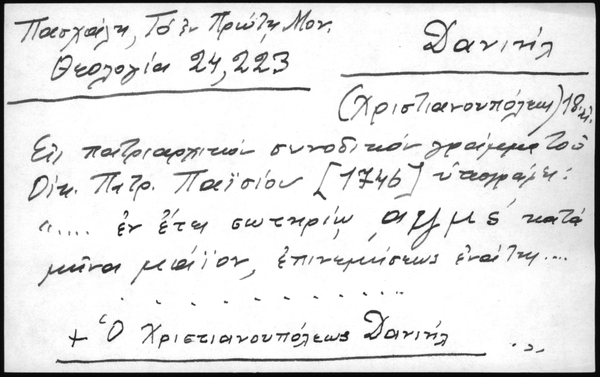 Πασχάλη, Τὸ ἐν Πρώτῃ Μον.
Θεολογία 24, 223
Δανιήλ
(Χριστιανουπόλεως) 18 αἰ.
Εἰς πατριαρχικὸν συνοδικὸν γράμμα τοῦ
Οἰκ. Πατρ. Παϊσίου [1746] ὑπογράφει:
«.... ἐν ἔτει σωτηρίῳ ͵αψμς΄ κατὰ
μῆνα μάϊον, ἐπινεμήσεως ἐνάτης....
. . . . . . . . . . . .
+ Ὁ Χριστιανουπόλεως Δανιήλ ..»